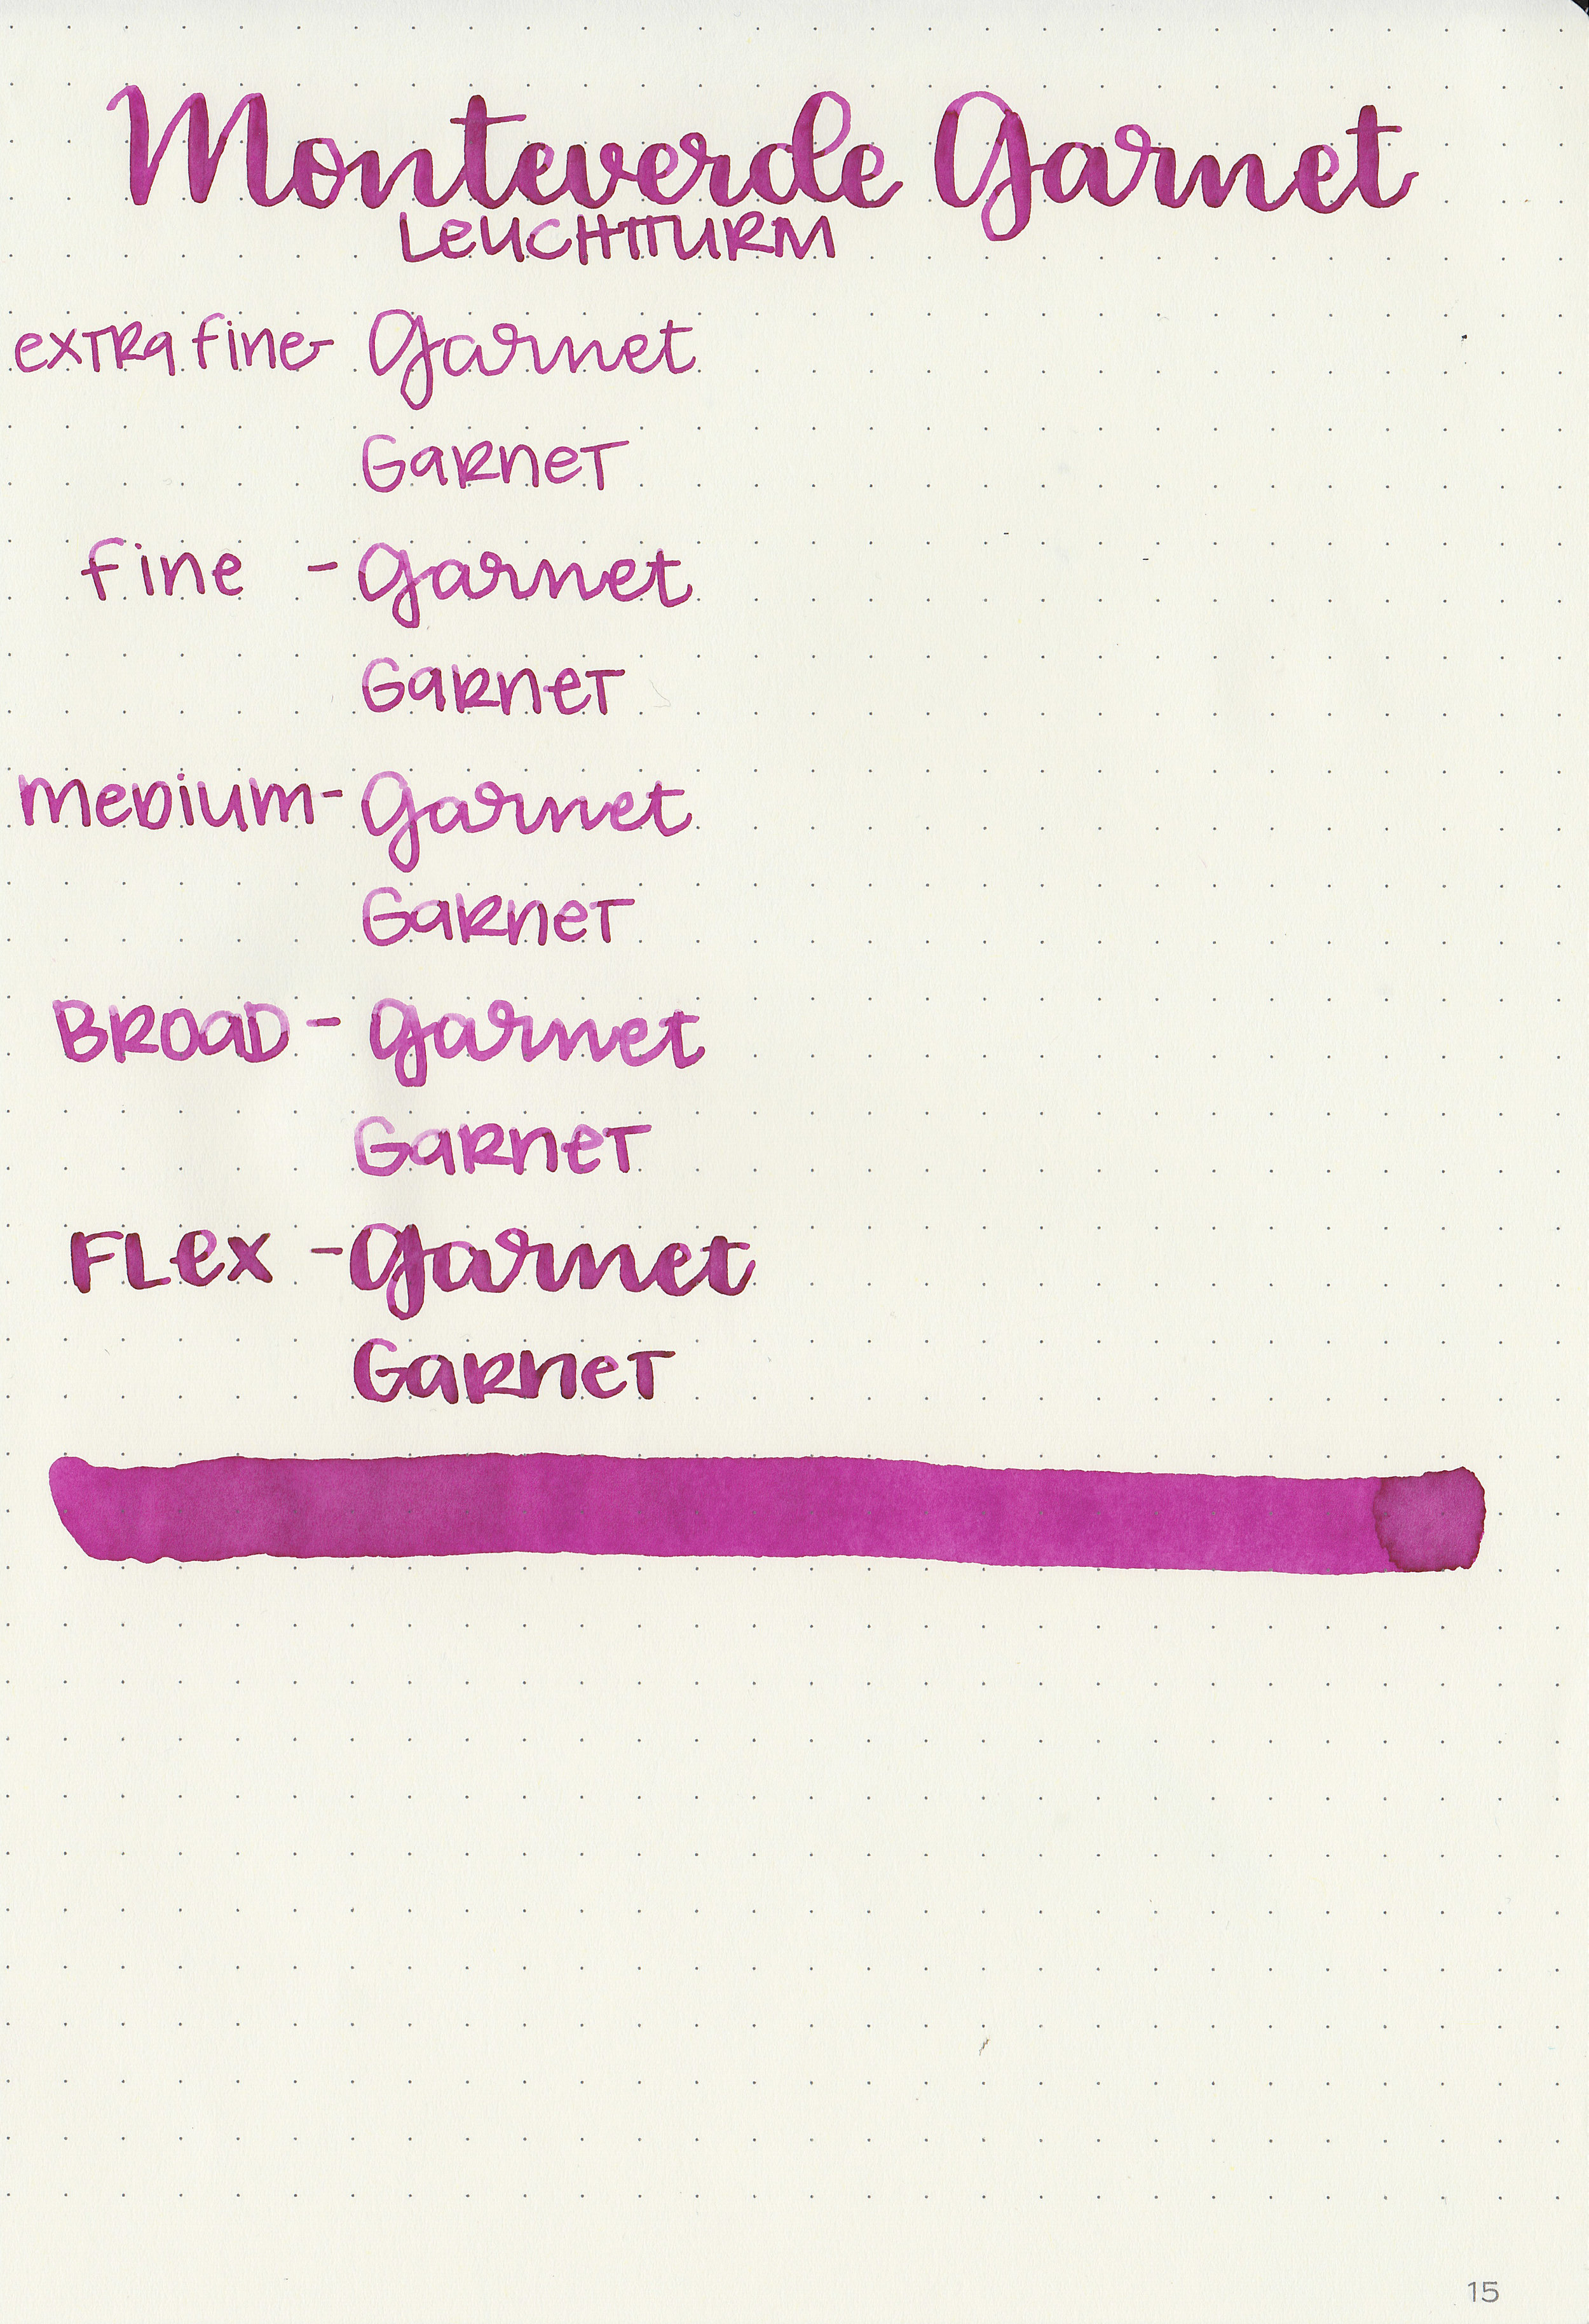 Monteverde Garnet
LEUCHTTURM
exTRa fine- Garnet
GaRneT
fine - Garnet
GaRneT
MeDiuM- Garnet
GaRneT
BROaD - Garnet
GaRneT
FLex - Garnet
GaRneT
15